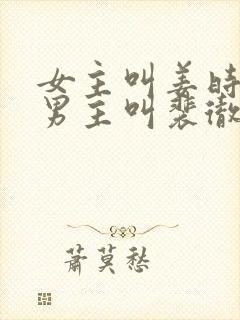 女主叫姜时
男主叫裴徹
萧莫愁